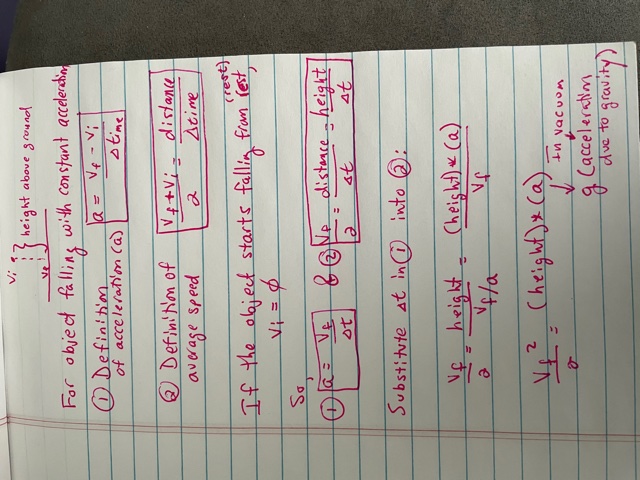 Vi
height above ground
Vf
For object falling with constant acceleration
① Definition of acceleration (a) a = Vf - Vi / Δtime
② Definition of average speed Vf + Vi / 2 = distance / Δtime
(rest)
If the object starts falling from rest,
Vi = ϕ
So,
① a = Vf / Δt & ② Vf / 2 = distance / Δt = height / Δt
Substitute Δt in ① into ②:
Vf / 2 = height / Vf/a = (height) * (a) / Vf
Vf² / 2 = (height) * (a)
In vacuum
g (acceleration
due to gravity)